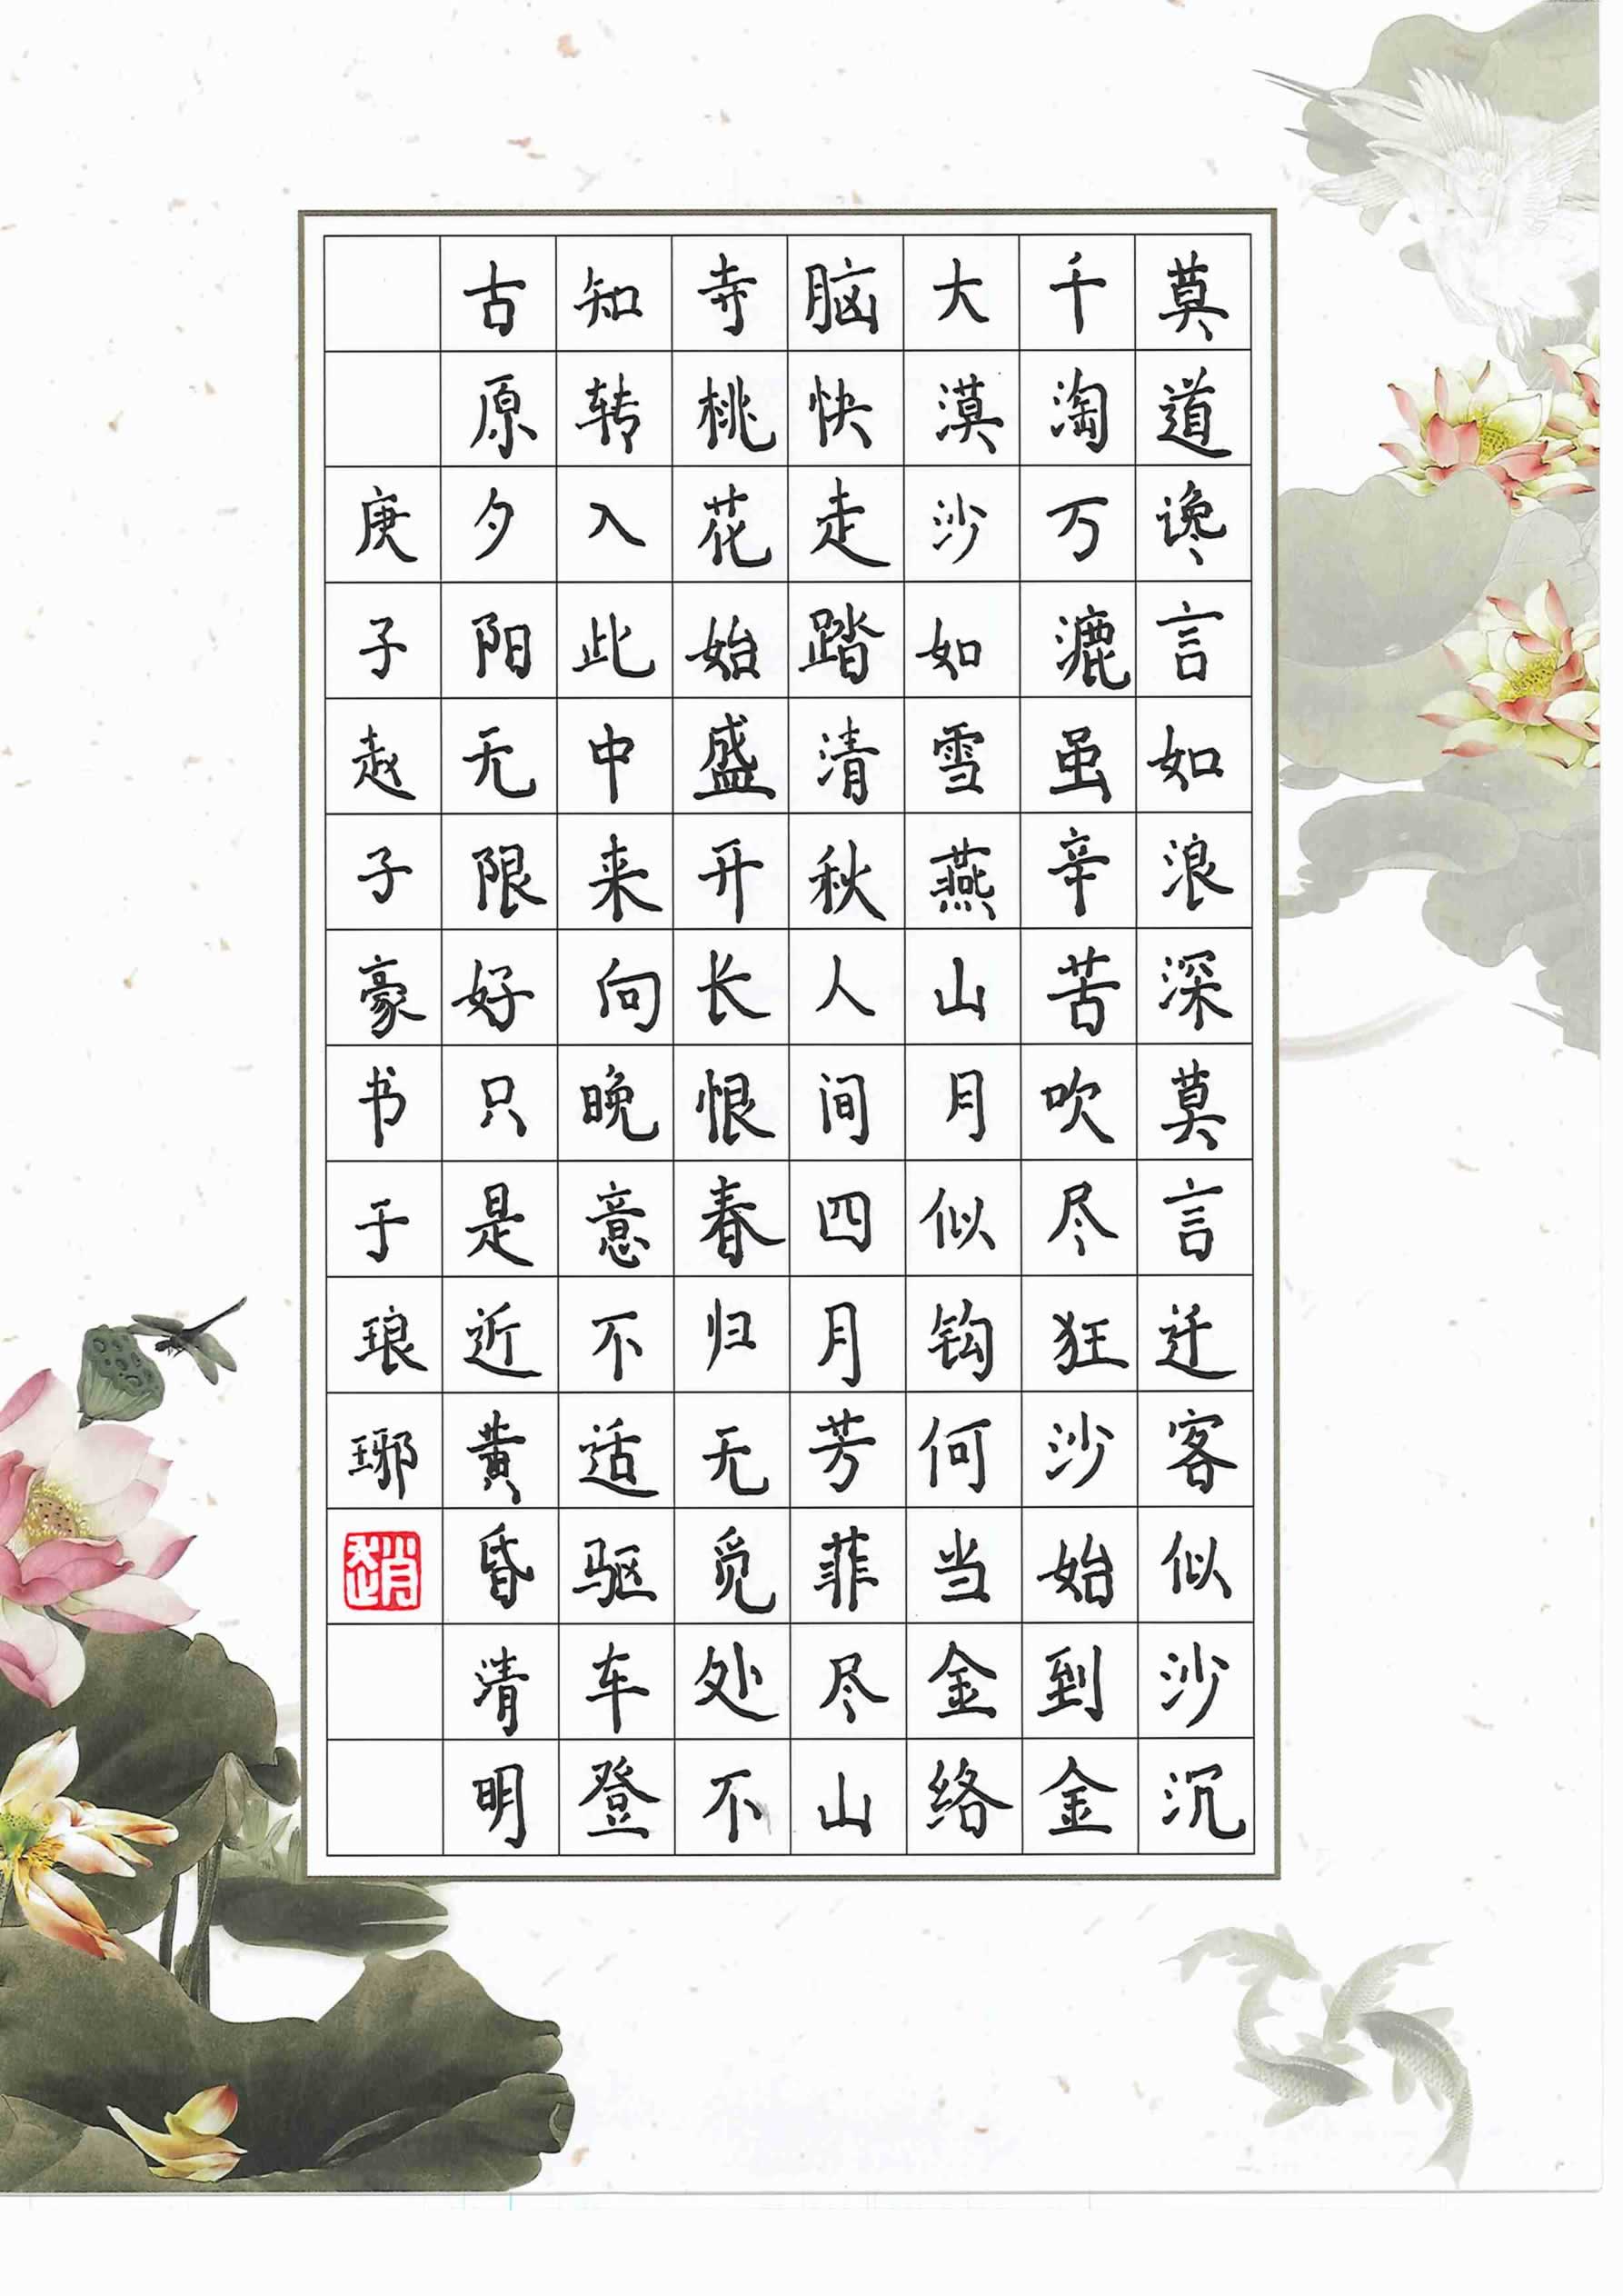 莫道谗言如浪深莫言迁客似沙沉
千淘万漉虽辛苦吹尽狂沙始到金
大漠沙如雪燕山月似钩何当金络
脑快走踏清秋人间四月芳菲尽山
寺桃花始盛开长恨春归无觅处不
知转入此中来向晚意不适驱车登
古原夕阳无限好只是近黄昏清明
庚子赵子豪书于琅琊
趙